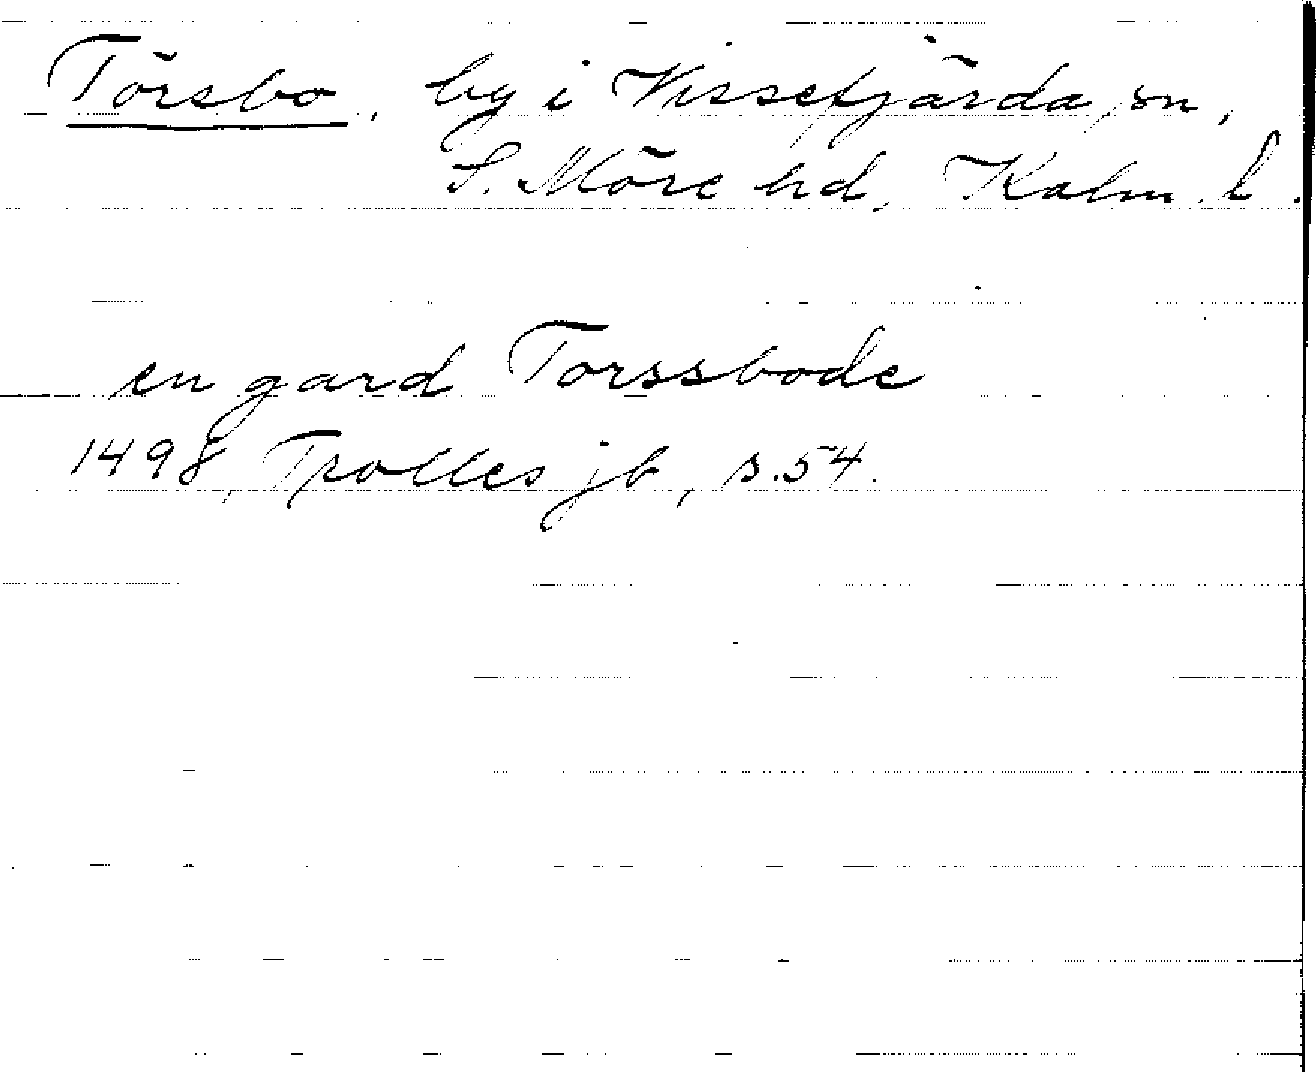 Törsbo, by i Vissefjärda sn,
S. Möre hd, Kalm. l.
en gard Torssbode
1498, Trolles jb, s. 54.